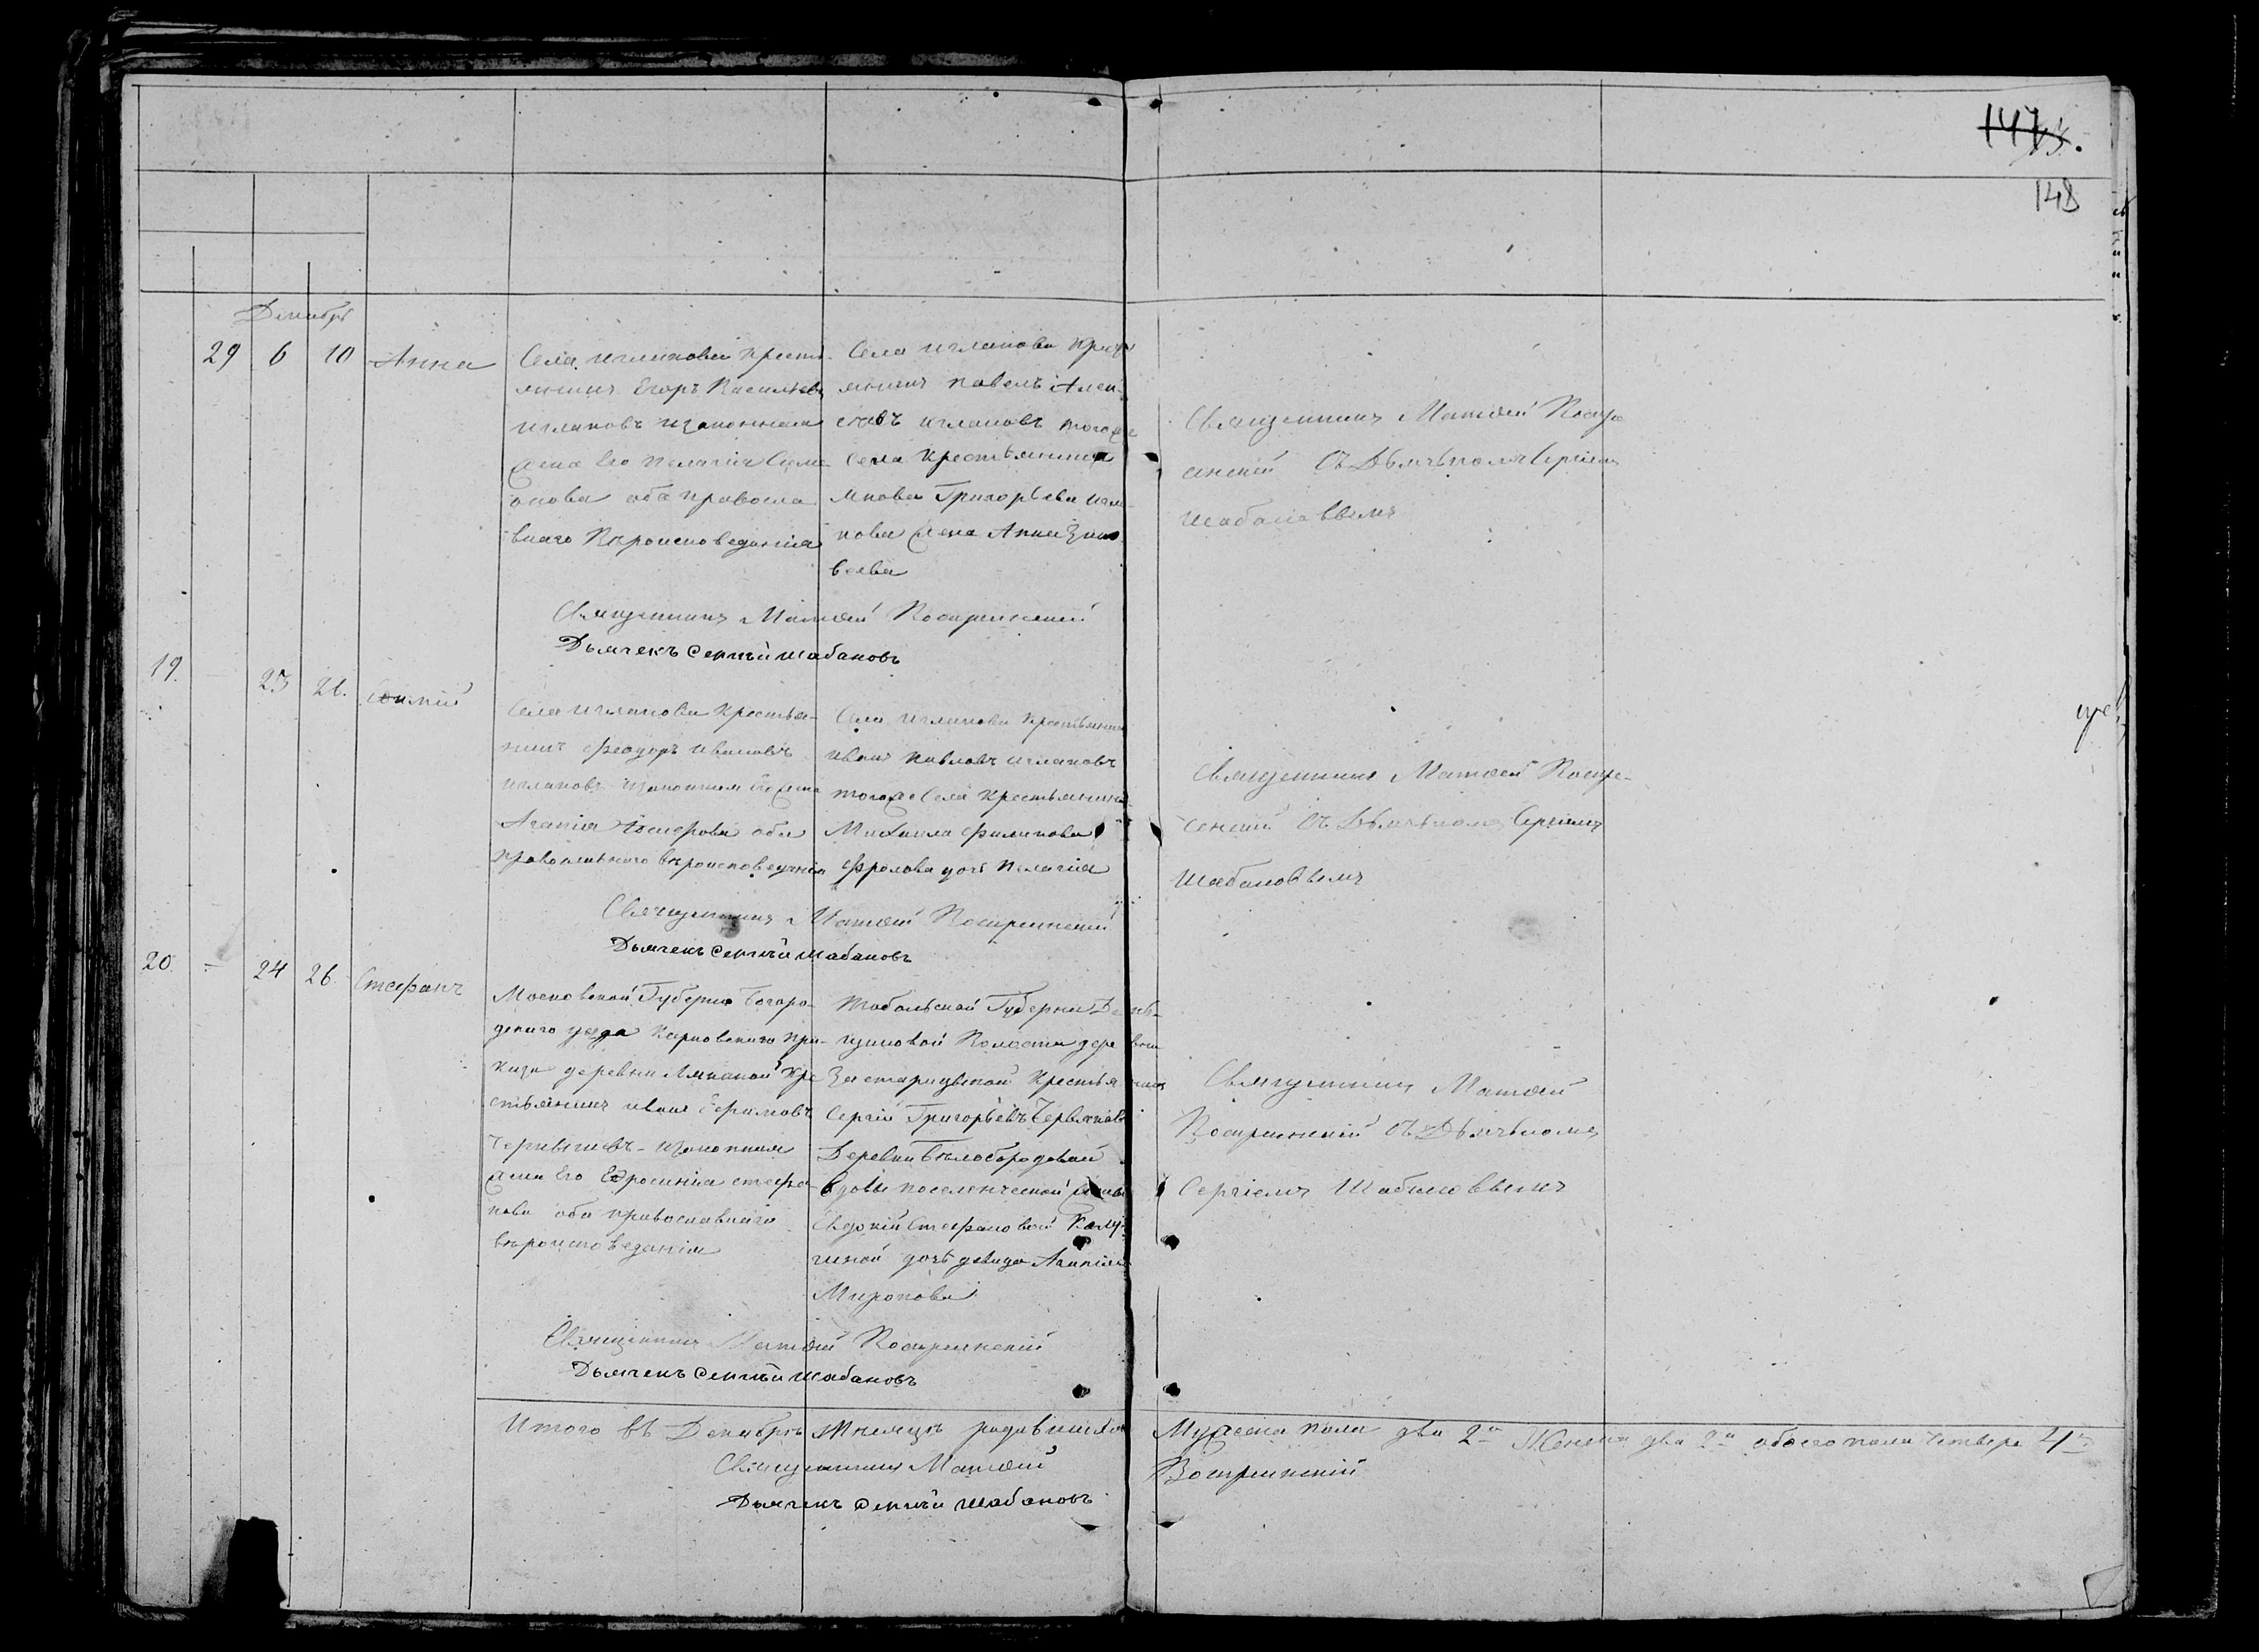 147.
148
Декабрь
29 6 10 Анна
Села Игланова Кресть-
янинъ Егоръ Васильевъ
Иглаковъ изаконная
жена Его Пелагія Симе-
онова оба православ
внаго Вѣроисповеданія
Села Игланова Кресть
янинъ Павелъ Алек
Иглаковъ тогоже
Села Крестьянина
Григорьева
кова жена Анна Зино
вьева
Священникъ Матѳей Воскре
сенскій съ Дьячькомъ Сергіемъ
Шабановвымъ
Священникъ Матѳей Воскресенскій
Дьячекъ Сергѣй Шабановъ
19. 25 26.
Села Иглакова Крестья-
нинъ Феодоръ Ивановъ
Иглаковъ изаконная его жена
Агапія оба
православнаго вѣроисповеданія
Села Иглакова Крестьянинъ
Иванъ Павловъ Иглаковъ
тогоже Села Крестьянина
Михаила Филипова
Фролова дочь Пелагія
Священникъ Матѳей Воскре-
сенскій съ Дьячькомъ Сергіемъ
Шабановвымъ
Священникъ Матѳей Воскресенскій
Дьячекъ Сергѣй Шабановъ
20. - 24 26 Стефанъ
Московской Губерніи Богоро-
дскаго уезда Карповскаго При-
каза деревни Кре
стьянинъ Иванъ Ефимовъ
Чернышевъ изаконная
жена Его Ефросинія Стефа-
нова оба православнаго
вѣроисповеданія
Тобольской Губерніи
Волости дере вни
Крестья нинъ
Сергій Григорьевъ Червяковъ
Деревни Бѣлобородовой
вдовы поселенческой жены
Евдокіи Стефановой
дочь девица
Миронова
Священникъ Матѳей
Воскресенскій съ Дьячькомъ
Сергіемъ Шабановвымъ
Священникъ Матѳей Воскресенскій
Дьячекъ Сергѣй Шабановъ
Итого въ Декабрѣ Мѣсяцѣ родившихся Мужеска пола два 2а Женска два 2а обоего пола Четверо 4ро
Священникъ Матѳей Воскресенскій
Дьячекъ Сергѣй Шабановъ